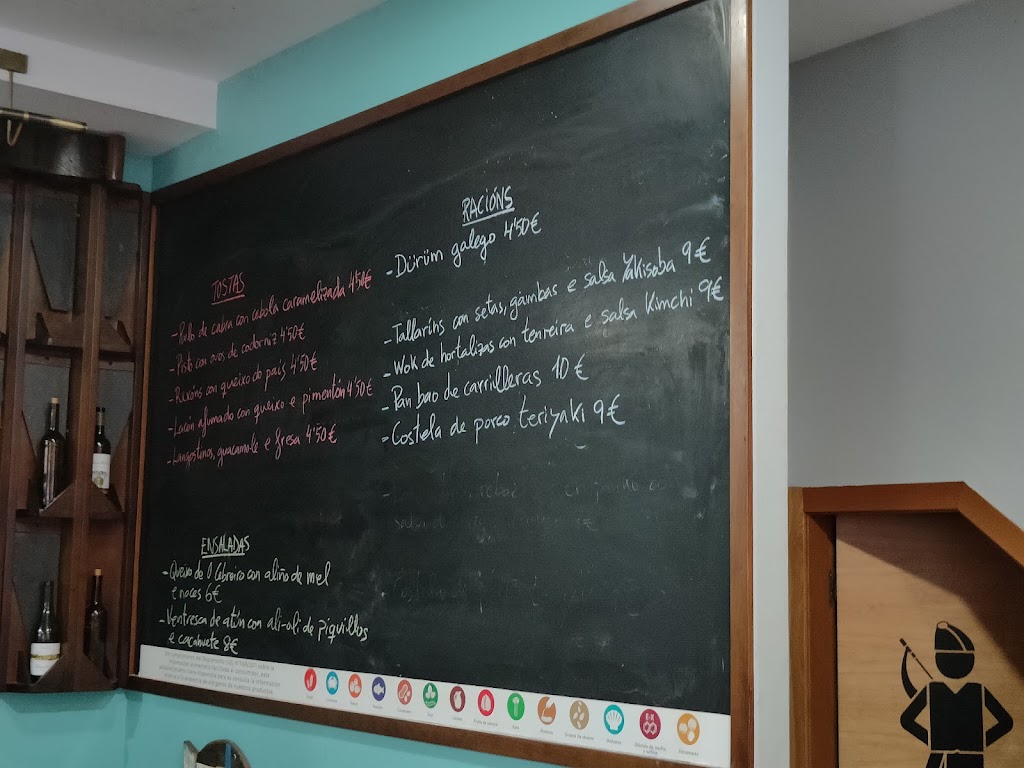 TOSTAS
- Rulo de cabra con cebola caramelizada 4'50€
- Pisto con ovos de codorniz 4'50€
- Rixóns con queixo do país 4'50€
- Lacón afumado con queixo e pimentón 4'50€
- Langostinos, guacamole e fresa 4'50€
ENSALADAS
- Queixo do O Cebreiro con aliño de mel
e noces 6€
- Ventresca de atún con ali-oli de piquillos
e cacahuete 8€
RACIÓNS
- Dürüm galego 4'50€
- Tallaríns con setas, gambas e salsa Yakisoba 9€
- Wok de hortalizas con tenreira e salsa Kimchi 9€
- Pan bao de carrilleras 10€
- Costela de porco teriyaki 9€